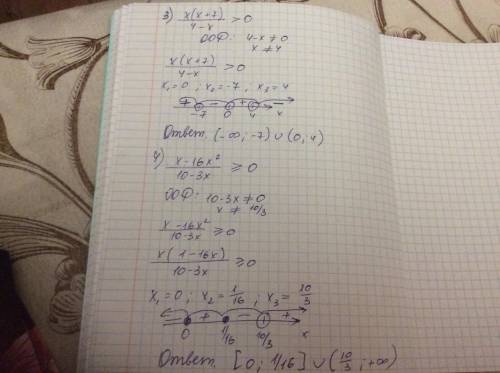 3) x(x+7)/4-x > 0
ООФ: 4-x ≠ 0
x ≠ 4
x(x+7)/4-x > 0
x₁=0 ; x₂=-7 ; x₃=4
+ - + -
-7 0 4 x
Ответ. (-∞; -7) ∪ (0; 4)
4) x-16x²/10-3x ≥ 0
ООФ: 10-3x ≠ 0
x ≠ 10/3
x-16x²/10-3x ≥ 0
x(1-16x)/10-3x ≥ 0
x₁=0 ; x₂=1/16 ; x₃=10/3
- + - +
0 1/16 10/3 x
Ответ. [0; 1/16] ∪ (10/3; +∞)